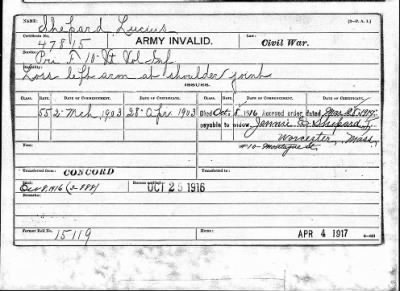 NAME: Shepard Lucius [3-P. A. 1.]
Certificate No. 47815 ARMY INVALID. Law: Civil War.
Service: Pri F 10-Vt Vol Inf
Disability: Loss left arm at shoulder joint
ISSUES.
CLASS. RATE. DATE OF COMMENCEMENT. DATE OF CERTIFICATE. CLASS. RATE. DATE OF COMMENCEMENT. DATE OF CERTIFICATE.
55 2-Mch 1903 28-Apr 1903 Died Oct. 8, 1916 Accrued order, dated Mar 28 1917
payable to widow, Jennie E. Shepard
Worcester, Mass.
#10- Montague St.
Transferred from CONCORD
Died
Dec 8, 1916 OCT 25 1916
Remarks:
Transferred to
Former Roll No. 15119 APR 4 1917